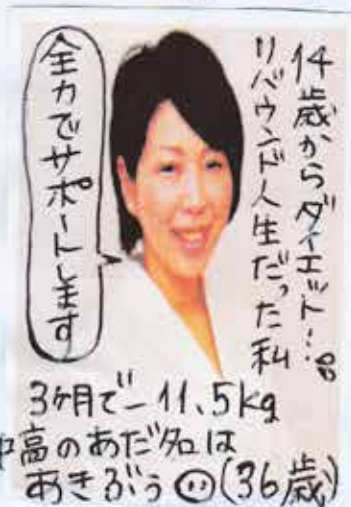 14歳からダイエット…
リバウンド人生だった私
全力でサポートします
3ヶ月で−11.5kg
中高のあだ名は
あきぶぅ(36歳)